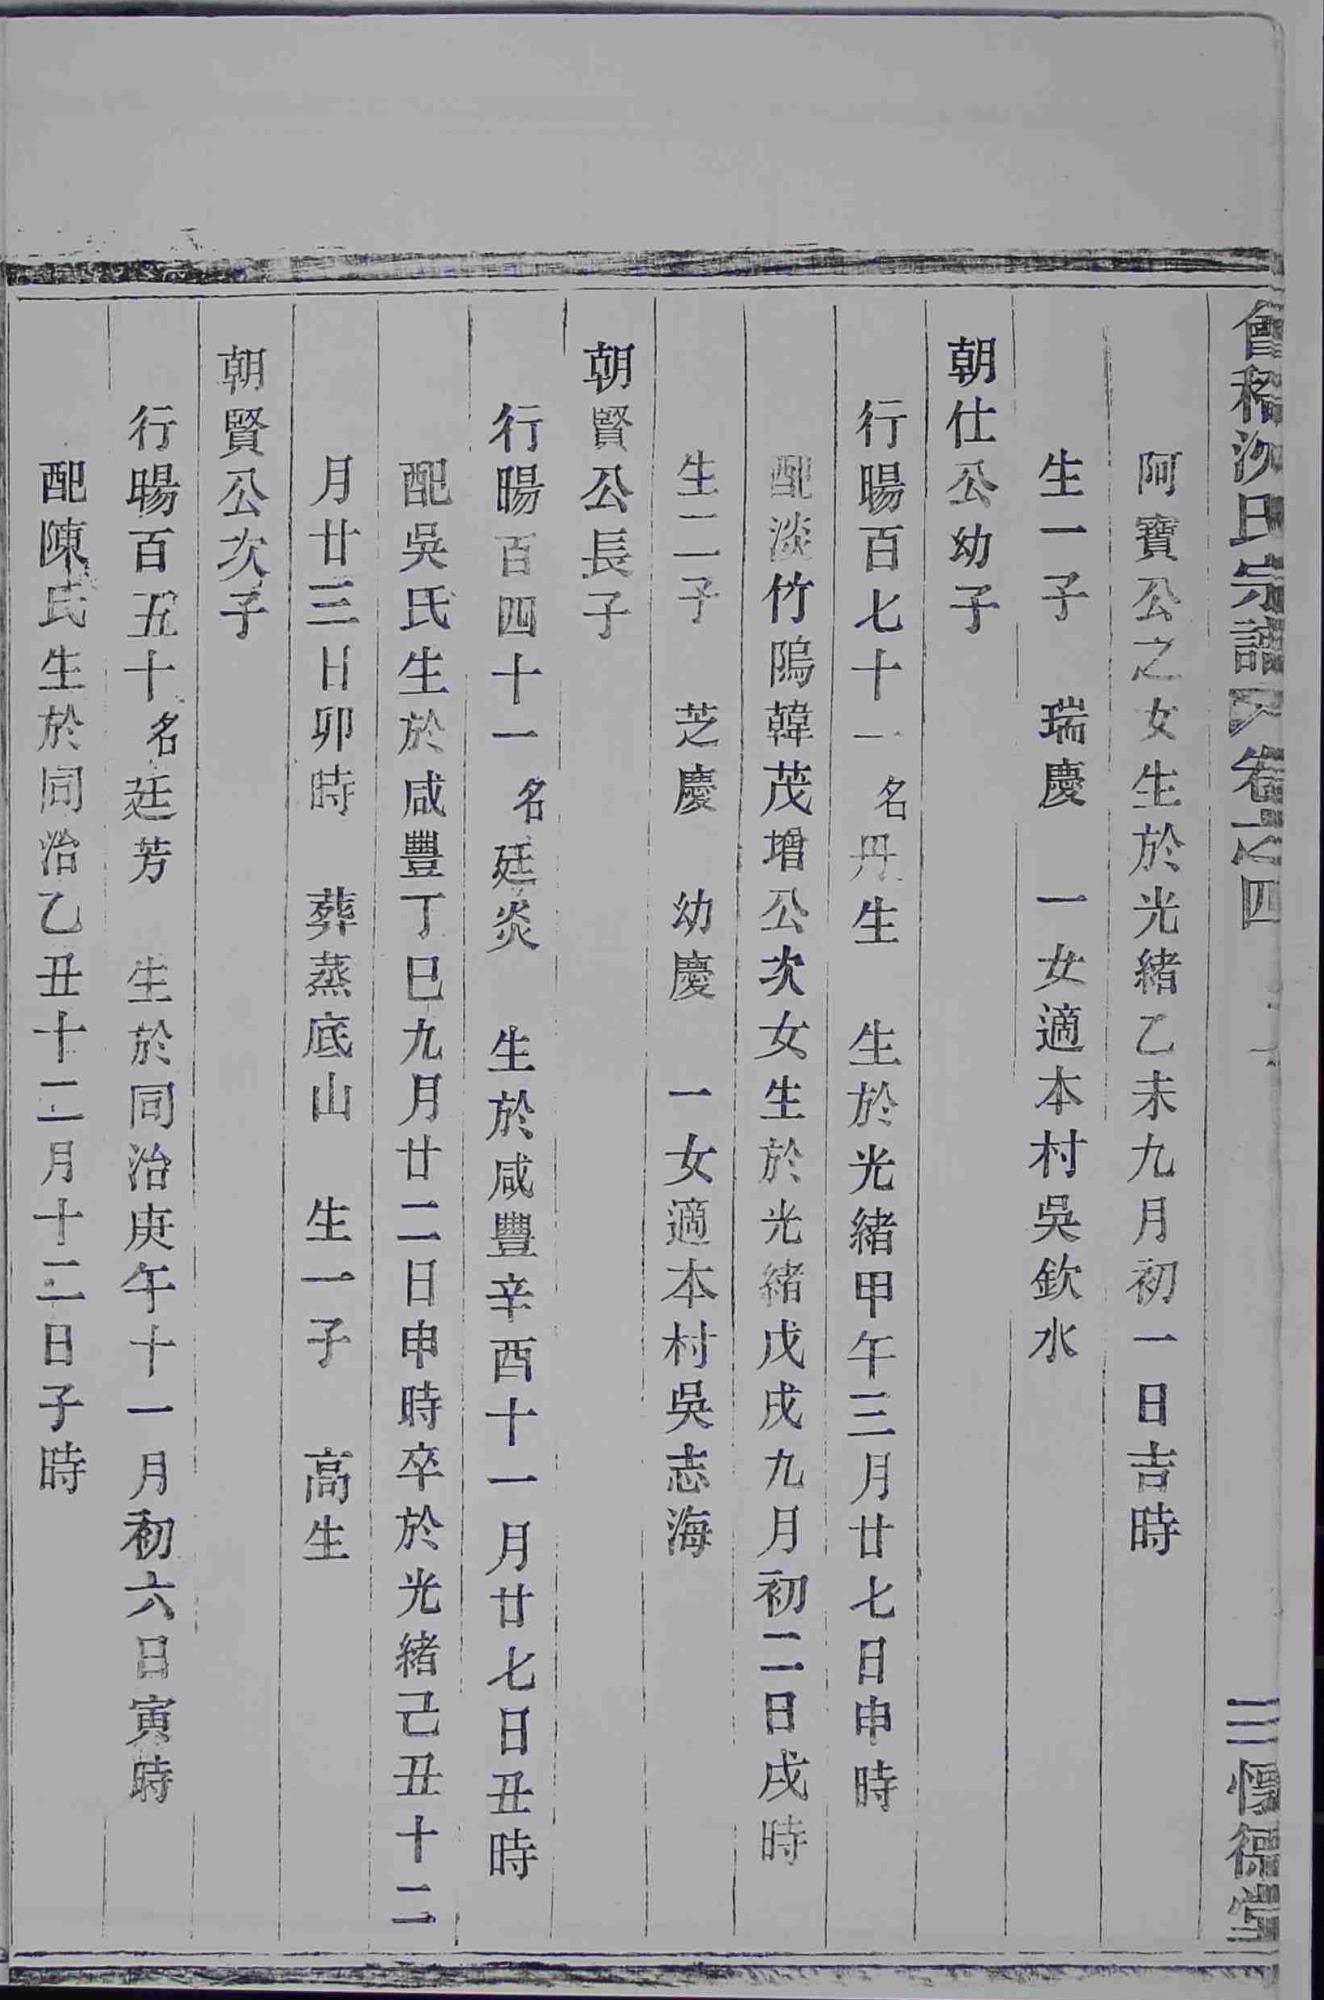 會稽沈氏宗譜 卷之四
三惇德堂
阿寶公之女生於光緒乙未九月初一日吉時
生一子 瑞慶 一女適本村吳欽水
朝仕公幼子
行暘百七十一名丹生 生於光緒甲午三月廿七日申時
配淡竹隖韓茂增公次女生於光緒戊戌九月初二日戌時
生二子 芝慶 幼慶 一女適本村吳志海
朝賢公長子
行暘百四十一名廷炎 生於咸豐辛酉十一月廿七日丑時
配吳氏生於咸豐丁巳九月廿二日申時卒於光緒己丑十二
月廿三日卯時 葬蒸底山 生一子 高生
朝賢公次子
行暘百五十名廷芳 生於同治庚午十一月初六日寅時
配陳氏生於同治乙丑十二月十二日子時